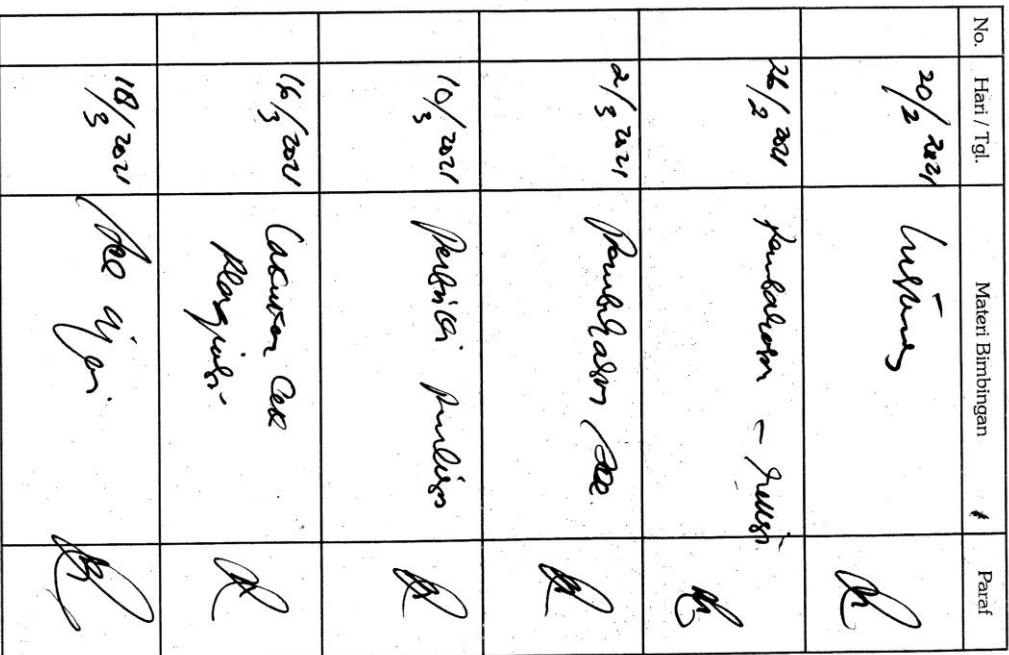 No. Hari / Tgl. Materi Bimbingan Paraf
20/2 2021
26/2 2021 Pembahasan - revisi
2/3 2021 Pembahasan Acc
10/3 2021 Perbaiki penulisan
16/3 2021 Lakukan Cek
Plagiasi
18/3 2021 Acc ujian